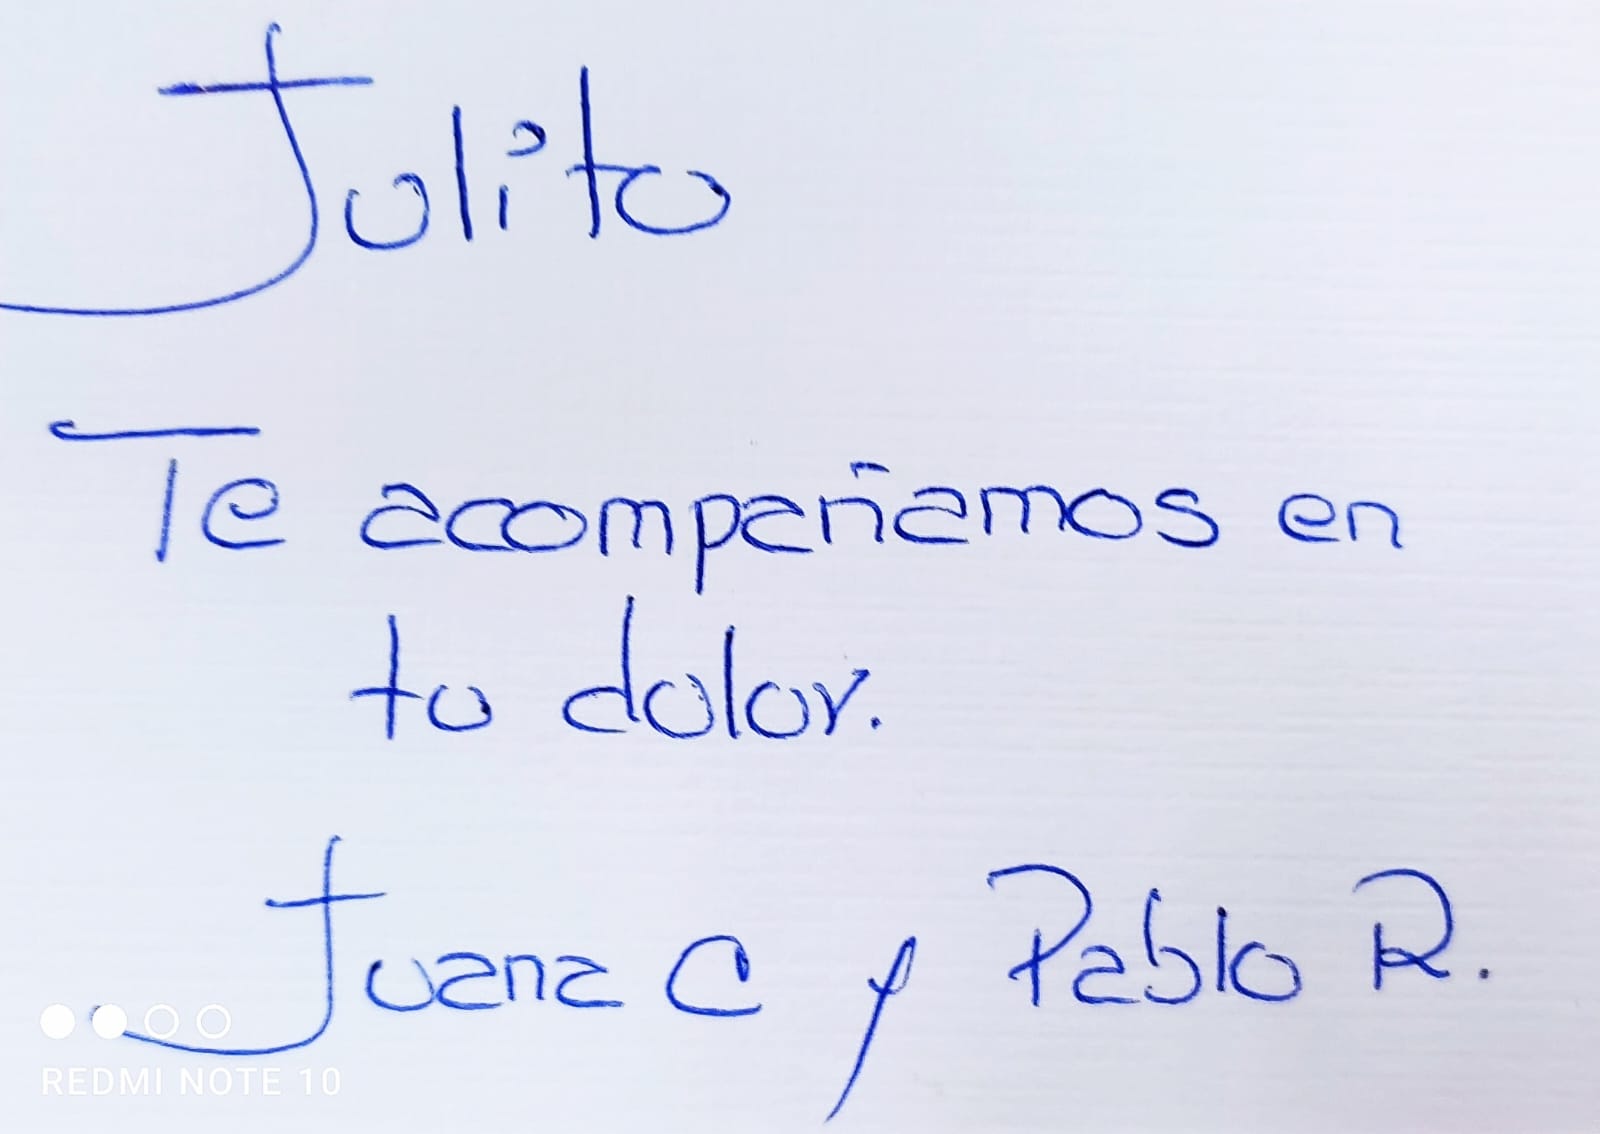 Julito
Te acompañamos en
tu dolor.
Juana C y Pablo R.
REDMI NOTE 10